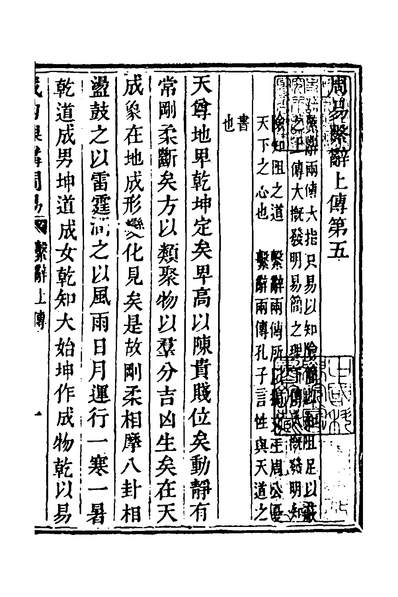 周易繫辭上傳第五
繫辭兩傳大指只易以知險簡以知阻足以蔽
之上傳大槪發明易簡之理下傳大槪發明知
險知阻之道　繫辭兩傳所以 文王周公憂
天下之心也　繫辭兩傳孔子言性與天道之
書
也
天尊地卑乾坤定矣卑高以陳貴賤位矣動靜有
常剛柔斷矣方以類聚物以羣分吉凶生矣在天
成象在地成形變化見矣是故剛柔相摩八卦相
盪鼓之以雷霆潤之以風雨日月運行一寒一暑
乾道成男坤道成女乾知大始坤作成物乾以易
周易 繫辭上傳 一